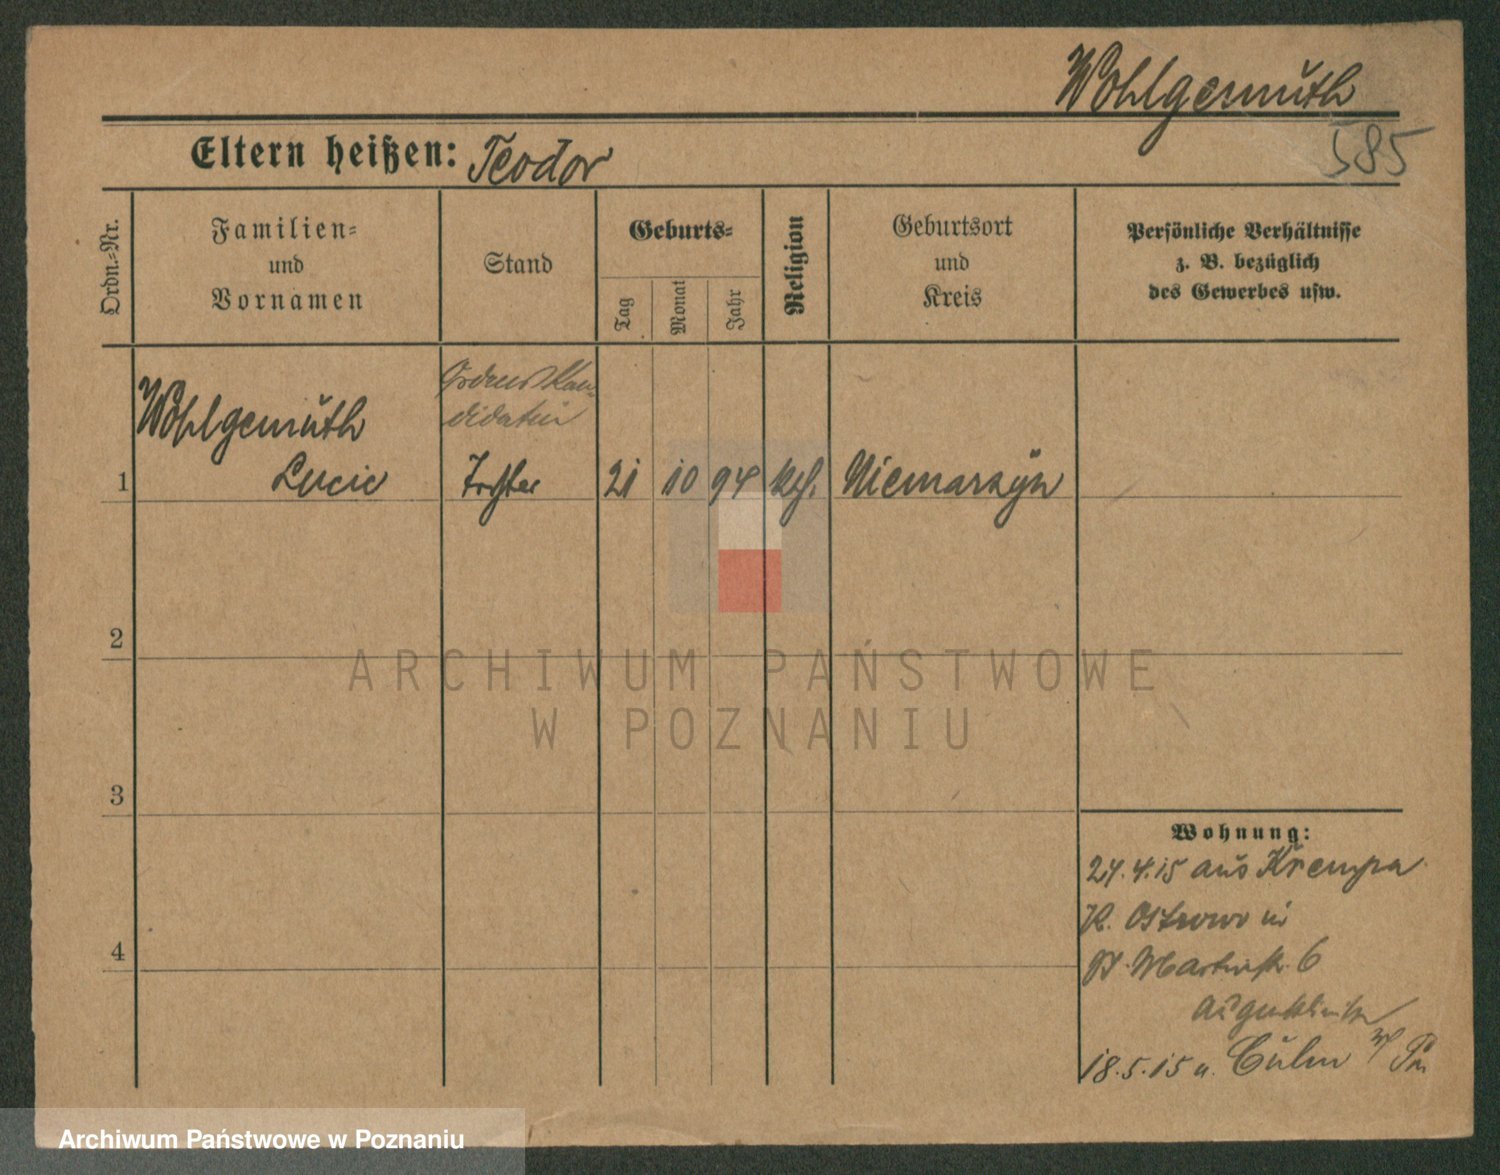 Wohlgemuth
585
Eltern heißen: Teodor
Ordn.-Nr.
Familien-
und
Vornamen
Stand
Geburts-
Tag
Monat
Jahr
Religion
Geburtsort
und
Kreis
Persönliche Verhältnisse
z. B. bezüglich
des Gewerbes usw.
Ordens Kan-
didatin
Wohlgemuth
1 Lucie Tochter 21 10 94 Niemarzyn
2
ARCHIWUM PAŃSTWOWE
W POZNANIU
3
Wohnung:
24.4.15 aus Krempa
K. Ostrowo in
Martinstr. 6
Augenklinik
4
18.5.15 n. Culm
Archiwum Państwowe w Poznaniu